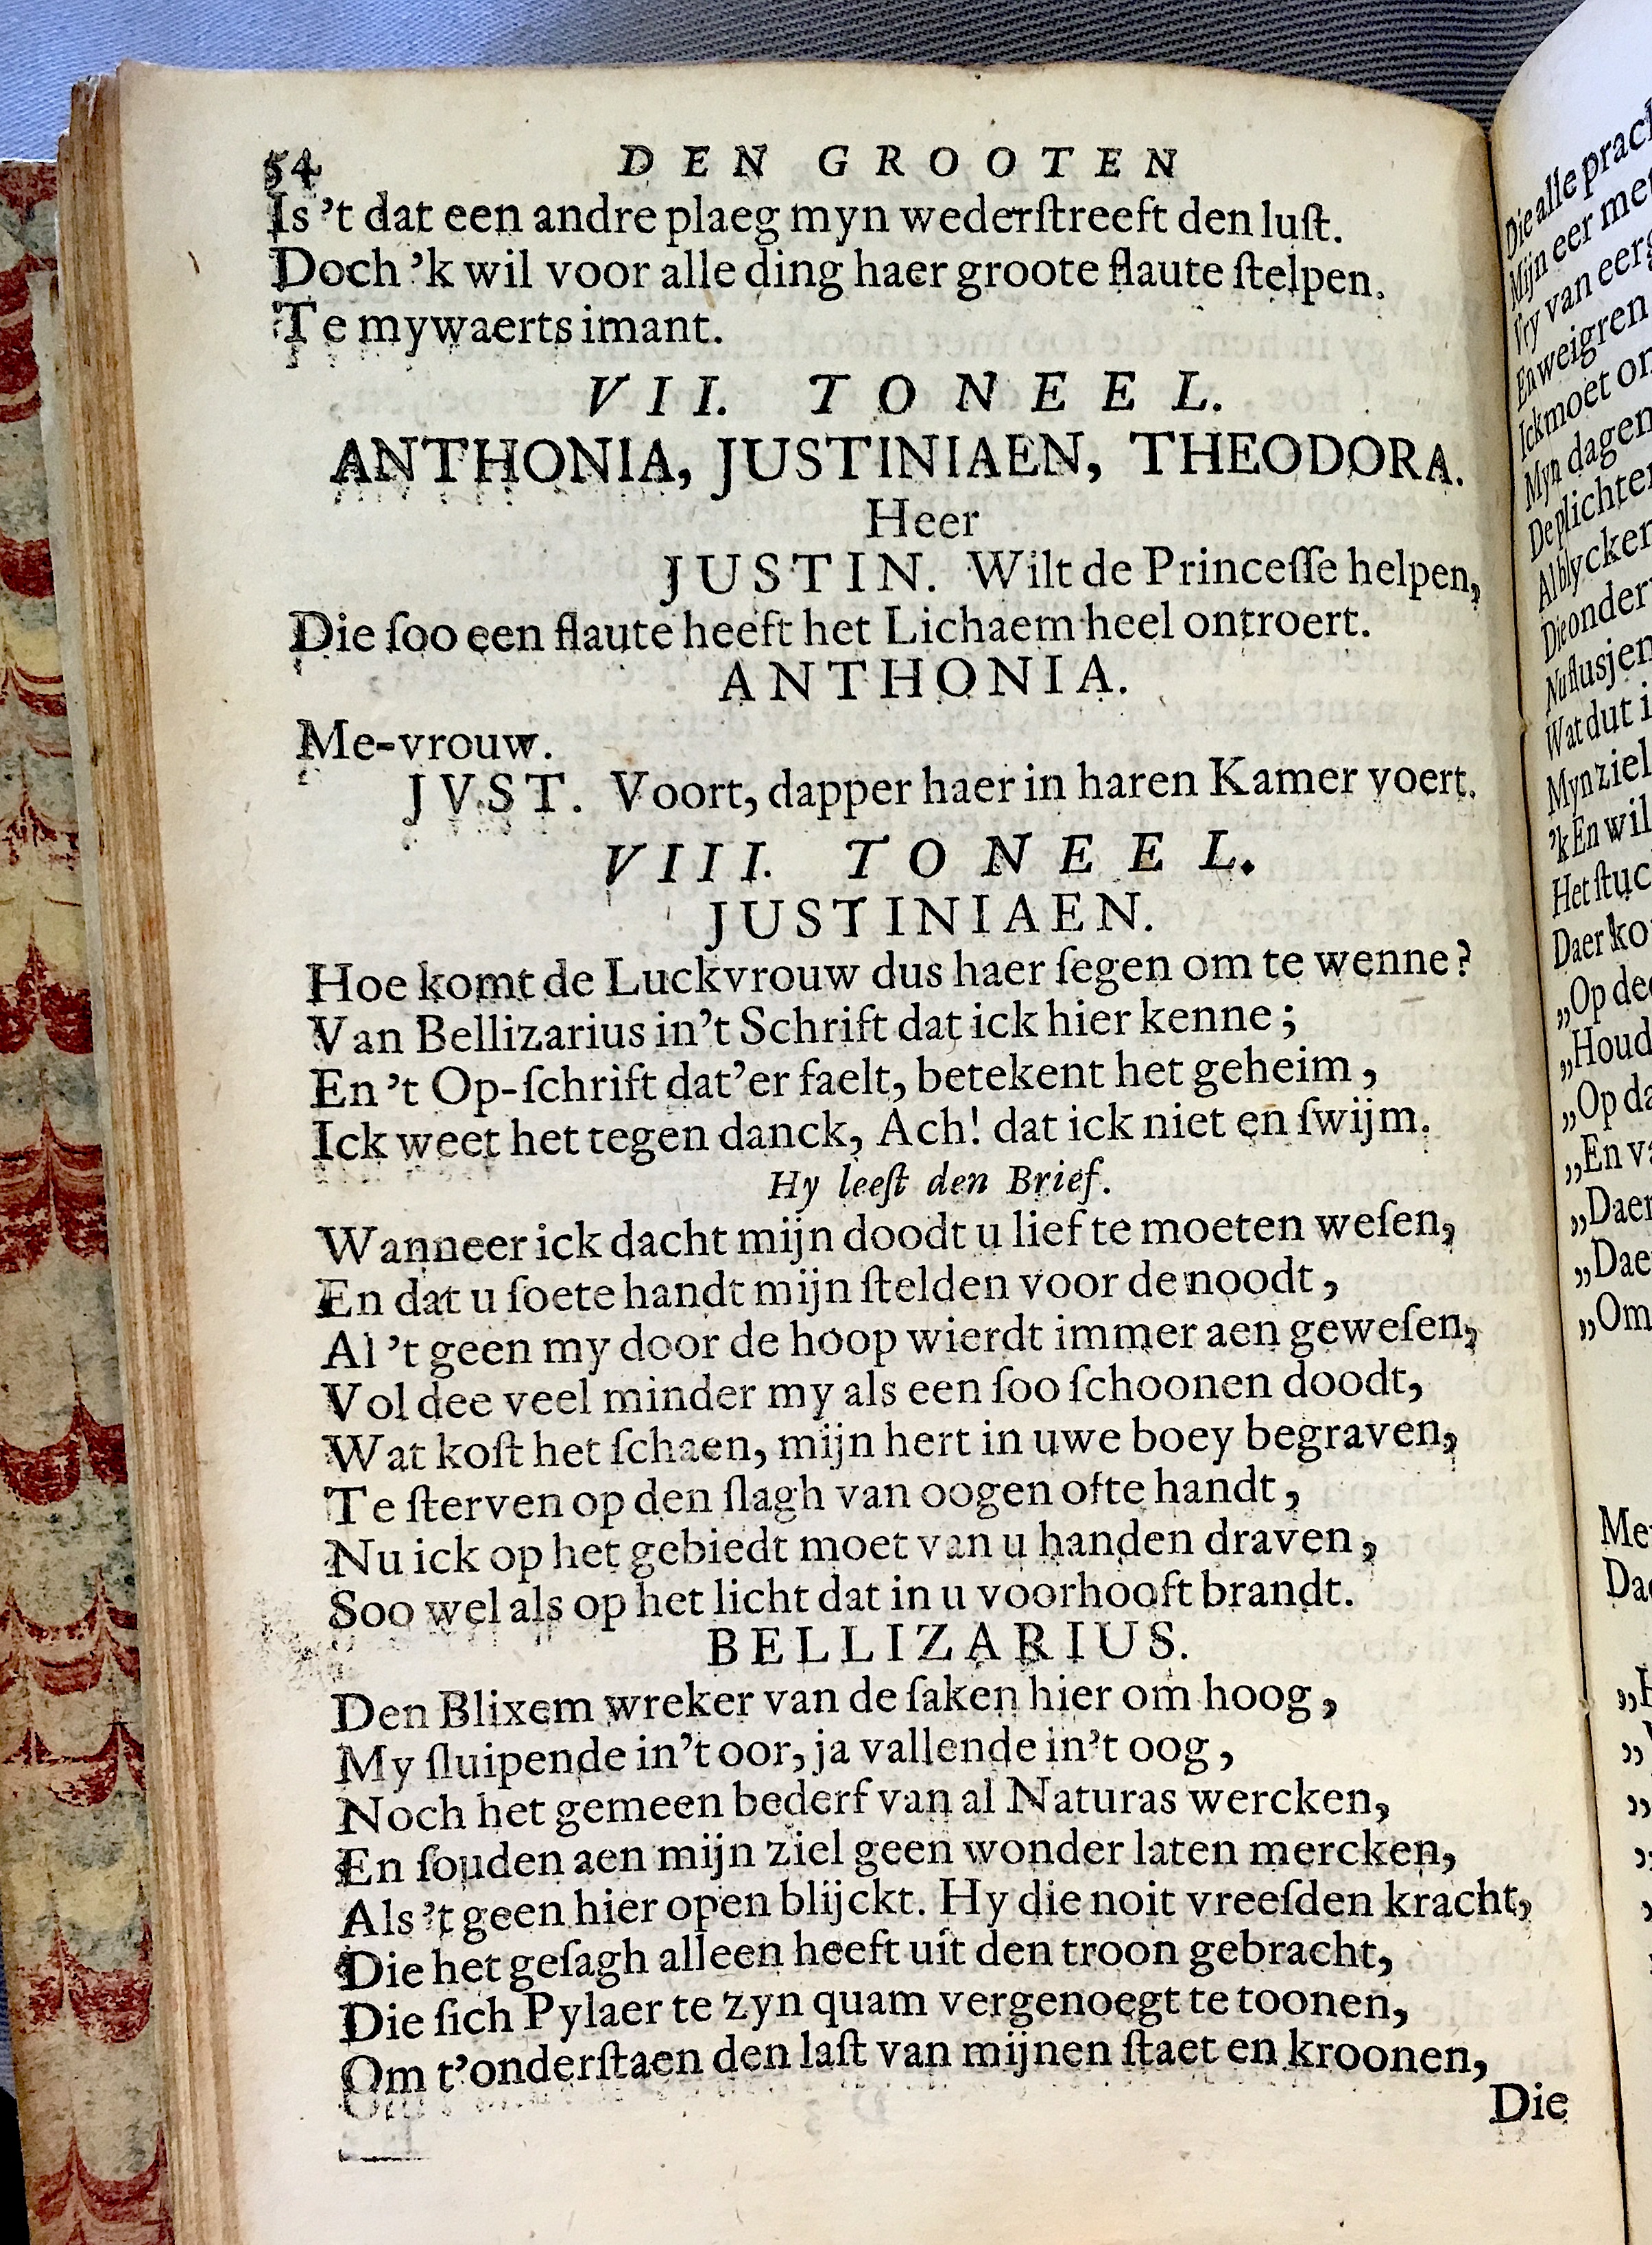 54 DEN GROOTEN
Is ’t dat een andre plaeg myn wederſtreeft den luſt.
Doch ’k wil voor alle ding haer groote flaute ſtelpen.
Te mywaerts imant.
VII. TONEEL.
ANTHONIA, JUSTINIAEN, THEODORA.
Heer
JUSTIN. Wilt de Princeſſe helpen,
Die ſoo een flaute heeft het Lichaem heel ontroert.
ANTHONIA.
Me-vrouw.
JVST. Voort, dapper haer in haren Kamer voert.
VIII. TONEEL.
JUSTINIAEN.
Hoe komt de Luckvrouw dus haer ſegen om te wenne?
Van Bellizarius in’t Schrift dat ick hier kenne;
En ’t Op-ſchrift dat’er faelt, betekent het geheim,
Ick weet het tegen danck, Ach! dat ick niet en ſwijm.
Hy leeſt den Brief.
Wanneer ick dacht mijn doodt u lief te moeten weſen,
En dat u ſoete handt mijn ſtelden voor de noodt,
Al ’t geen my door de hoop wierdt immer aen geweſen,
Vol dee veel minder my als een ſoo ſchoonen doodt,
Wat koſt het ſchaen, mijn hert in uwe boey begraven,
Te ſterven op den ſlagh van oogen ofte handt,
Nu ick op het gebiedt moet van u handen draven,
Soo wel als op het licht dat in u voorhooft brandt.
BELLIZARIUS.
Den Blixem wreker van de ſaken hier om hoog,
My ſluipende in’t oor, ja vallende in’t oog,
Noch het gemeen bederf van al Naturas wercken,
En ſouden aen mijn ziel geen wonder laten mercken,
Als ’t geen hier open blijckt. Hy die noit vreeſden kracht,
Die het geſagh alleen heeft uit den troon gebracht,
Die ſich Pylaer te zyn quam vergenoegt te toonen,
Om t’onderſtaen den laſt van mijnen ſtaet en kroonen,
Die
Die alle
Mijn eer
Vry van
En weigren
Ick moet
Myn dagen
De
Al
Die onder
Nu flusjen
Wat dut
Myn ziel
’k En wil
Het
Daer
„Op
„Houd
„Op
„En
„Daer
„
„Om